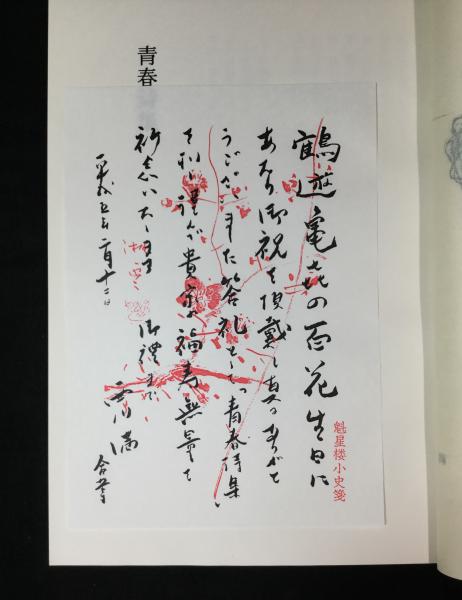 青春
魁星楼小史箋
鶴遊亀㐂の百花生日に
あたり御祝を頂戴し真にありがと
うございました答礼として青春詩集
を刊し謹んで貴家福寿無量を
祈念いたします 御禮まで
平成五年二月十二日
合掌